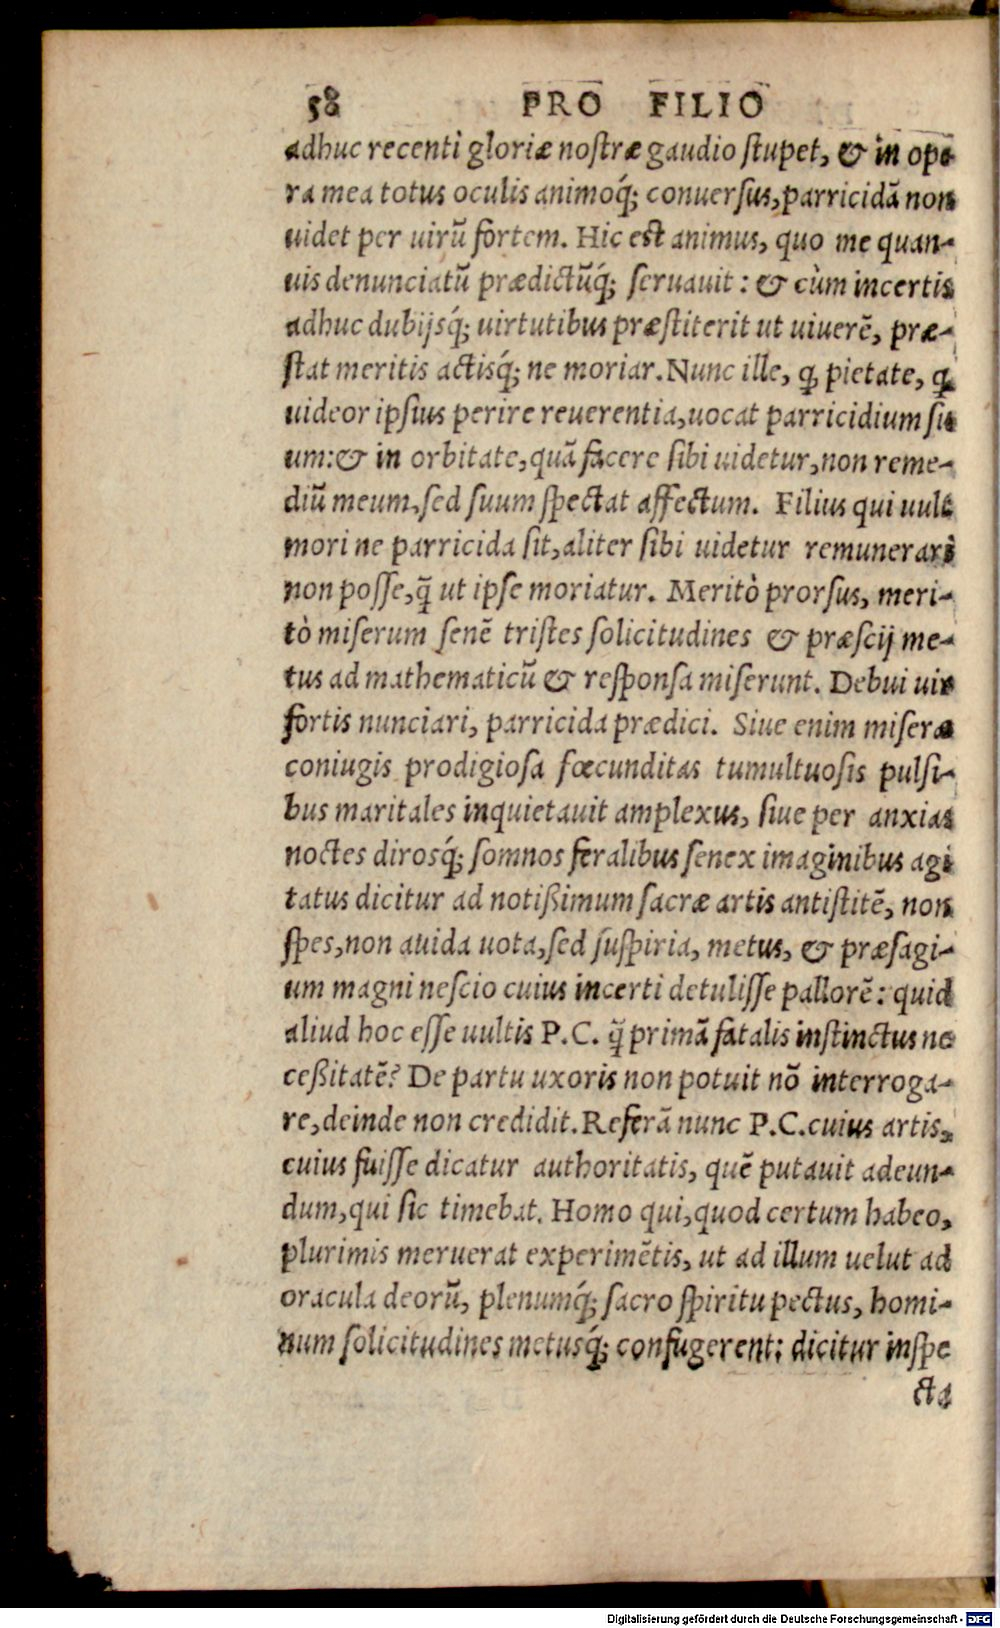 58 PRO FILIO
adhuc recenti gloriæ nostræ gaudio stupet, & in ope
ra mea totus oculis animoq́; conuersus, parricidā non
uidet per uirū fortem. Hic est animus, quo me quan-
uis denunciatū prædictūq́; seruauit: & cùm incertis
adhuc dubijsq́; uirtutibus præstiterit ut uiuerē, præ-
stat meritis actisq́; ne moriar. Nunc ille, ꝙ pietate, ꝙ
uideor ipsius perire reuerentia, uocat parricidium su
um: & in orbitate, quā facere sibi uidetur, non reme-
diū meum, sed suum spectat affectum. Filius qui uult
mori ne parricida sit, aliter sibi uidetur remunerari
non posse, q̄ ut ipse moriatur. Meritò prorsus, meri-
tò miserum senē tristes solicitudines & præscij me-
tus ad mathematicū & responsa miserunt. Debui uir
fortis nunciari, parricida prædici. Siue enim miseræ
coniugis prodigiosa fœcunditas tumultuosis pulsi-
bus maritales inquietauit amplexus, siue per anxias
noctes dirosq́; somnos feralibus senex imaginibus agi
tatus dicitur ad notißimum sacræ artis antistitē, non
spes, non auida uota, sed suspiria, metus, & præsagi-
um magni nescio cuius incerti detulisse pallorē: quid
aliud hoc esse uultis P.C. q̄ primā fatalis instinctus ne
ceßitatē? De partu uxoris non potuit nō interroga-
re, deinde non credidit. Referā nunc P.C. cuius artis,
cuius fuisse dicatur authoritatis, quē putauit adeun-
dum, qui sic timebat. Homo qui, quod certum habeo,
plurimis meruerat experimētis, ut ad illum uelut ad
oracula deorū, plenumq́; sacro spiritu pectus, homi-
num solicitudines metusq́; confugerent: dicitur inspe
cta
Digitalisierung gefördert durch die Deutsche Forschungsgemeinschaft - DFG